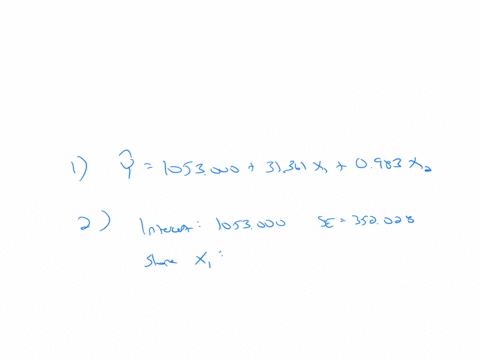 1) Ŷ = 1053.000 + 31.361 X₁ + 0.983 X₂
2) Intercept: 1053.000 SE = 352.028
Share X₁: